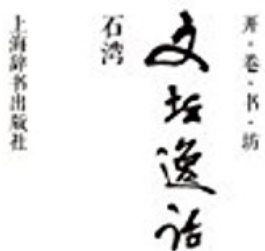 开·卷·书·坊
文坛逸话
石湾
上海辞书出版社